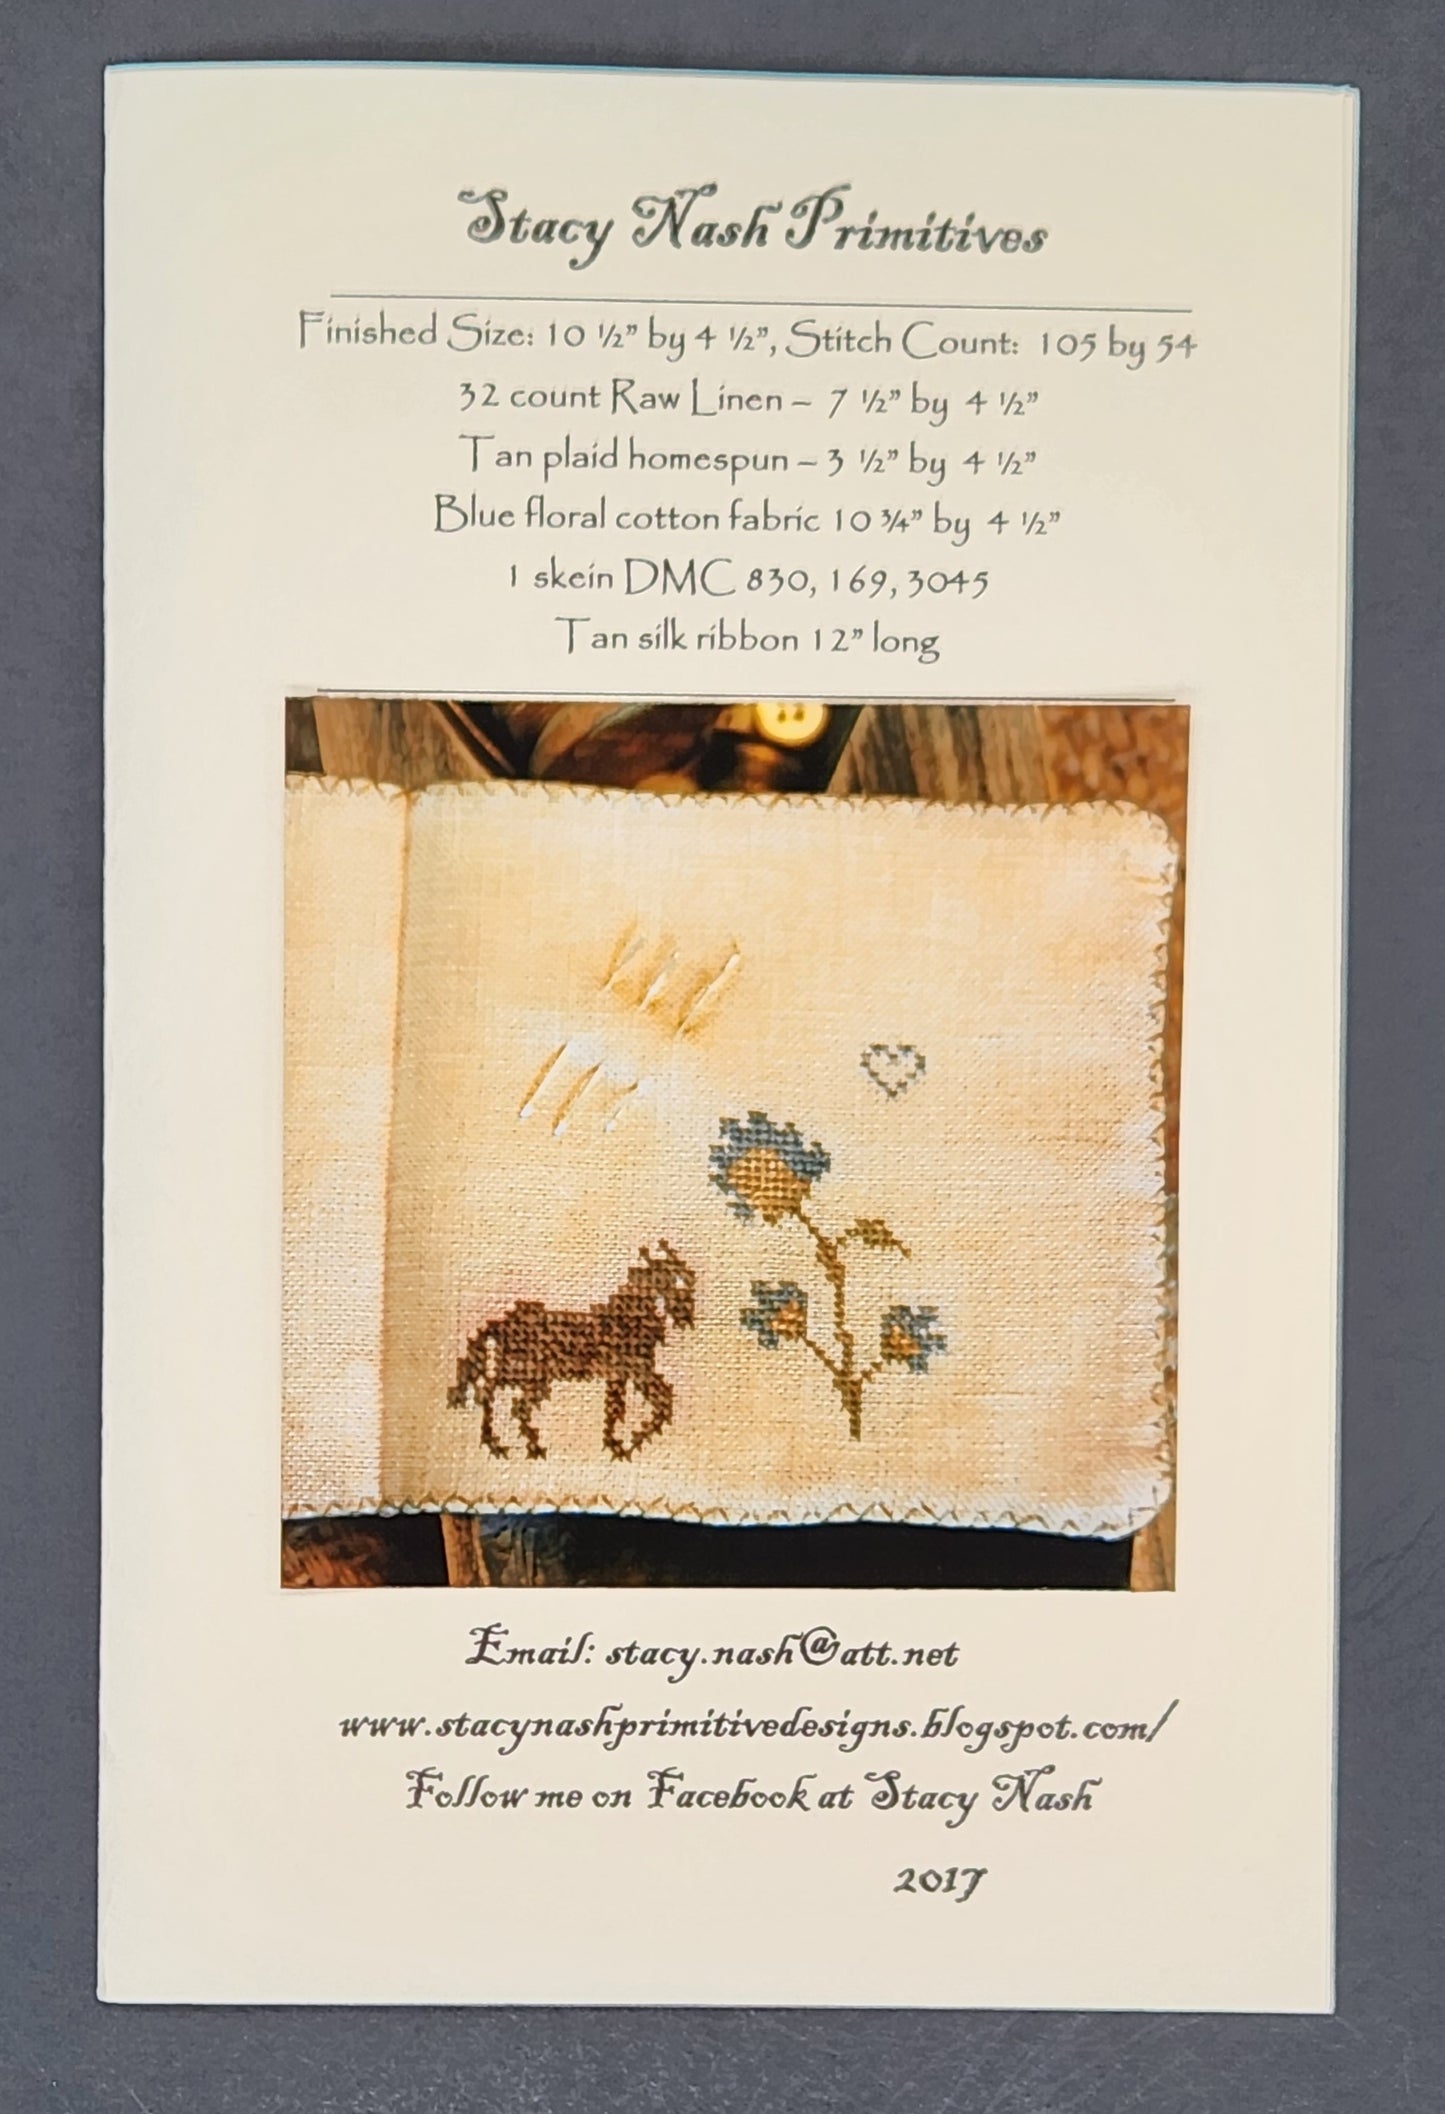 Stacy Nash Primitives
Finished Size: 10 ½” by 4 ½”, Stitch Count: 105 by 54
32 count Raw Linen – 7 ½” by 4 ½”
Tan plaid homespun – 3 ½” by 4 ½”
Blue floral cotton fabric 10 ¾” by 4 ½”
1 skein DMC 830, 169, 3045
Tan silk ribbon 12” long
Email: stacy.nash@att.net
www.stacynashprimitivedesigns.blogspot.com/
Follow me on Facebook at Stacy Nash
2017